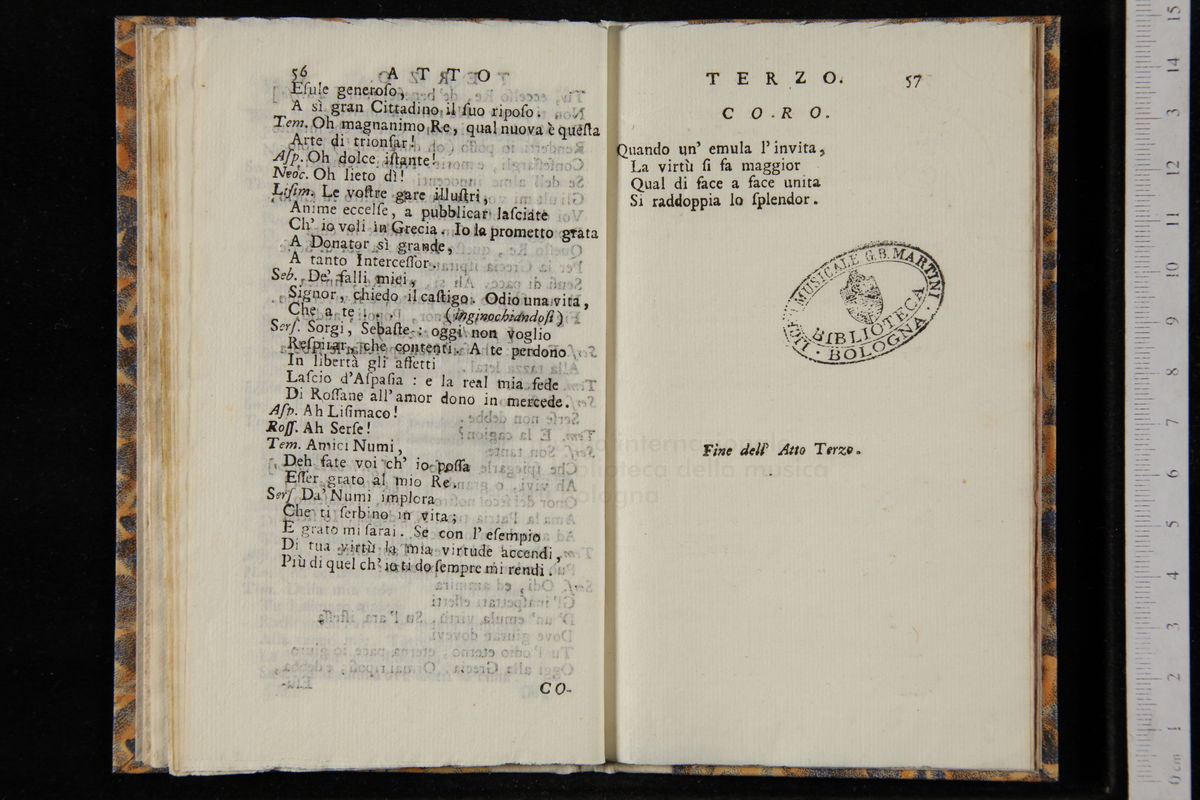 56 A T T O
Eſule generoſo,
A sì gran Cittadino il ſuo ripoſo.
Tem. Oh magnanimo Re, qual nuova è queſta
Arte di trionfar!
Aſp. Oh dolce iſtante!
Neoc. Oh lieto dì!
Liſim. Le voſtre gare illuſtri,
Anime eccelſe, a pubblicar laſciate
Ch' io voli in Grecia. Io la prometto grata
A Donator sì grande,
A tanto Interceſſor.
Seb. De' falli miei,
Signor, chiedo il caſtigo. Odio una vita,
Che a te . . . (inginochiandoſi)
Serſ. Sorgi, Sebaſte: oggi non voglio
Reſpirar, che contenti. A te perdono
In libertà gli affetti
Laſcio d'Aſpaſia: e la real mia fede
Di Roſſane all' amor dono in mercede.
Aſp. Ah Liſimaco!
Roſſ. Ah Serſe!
Tem. Amici Numi,
Deh fate voi ch' io poſſa
Eſſer grato al mio Re.
Serſ Da' Numi implora
Che ti ſerbino in vita;
E grato mi ſarai. Se con l' eſempio
Di tua virtù la mia virtude accendi,
Più di quel ch' io ti do ſempre mi rendi.
CO-
T E R Z O. 57
C O R O.
Quando un' emula l' invita,
La virtù ſi fa maggior
Qual di face a face unita
Si raddoppia lo ſplendor.
LICEO MUSICALE G.B. MARTINI
BIBLIOTECA
· BOLOGNA ·
Fine dell' Atto Terzo.
internazionale
biblioteca della musica
bologna